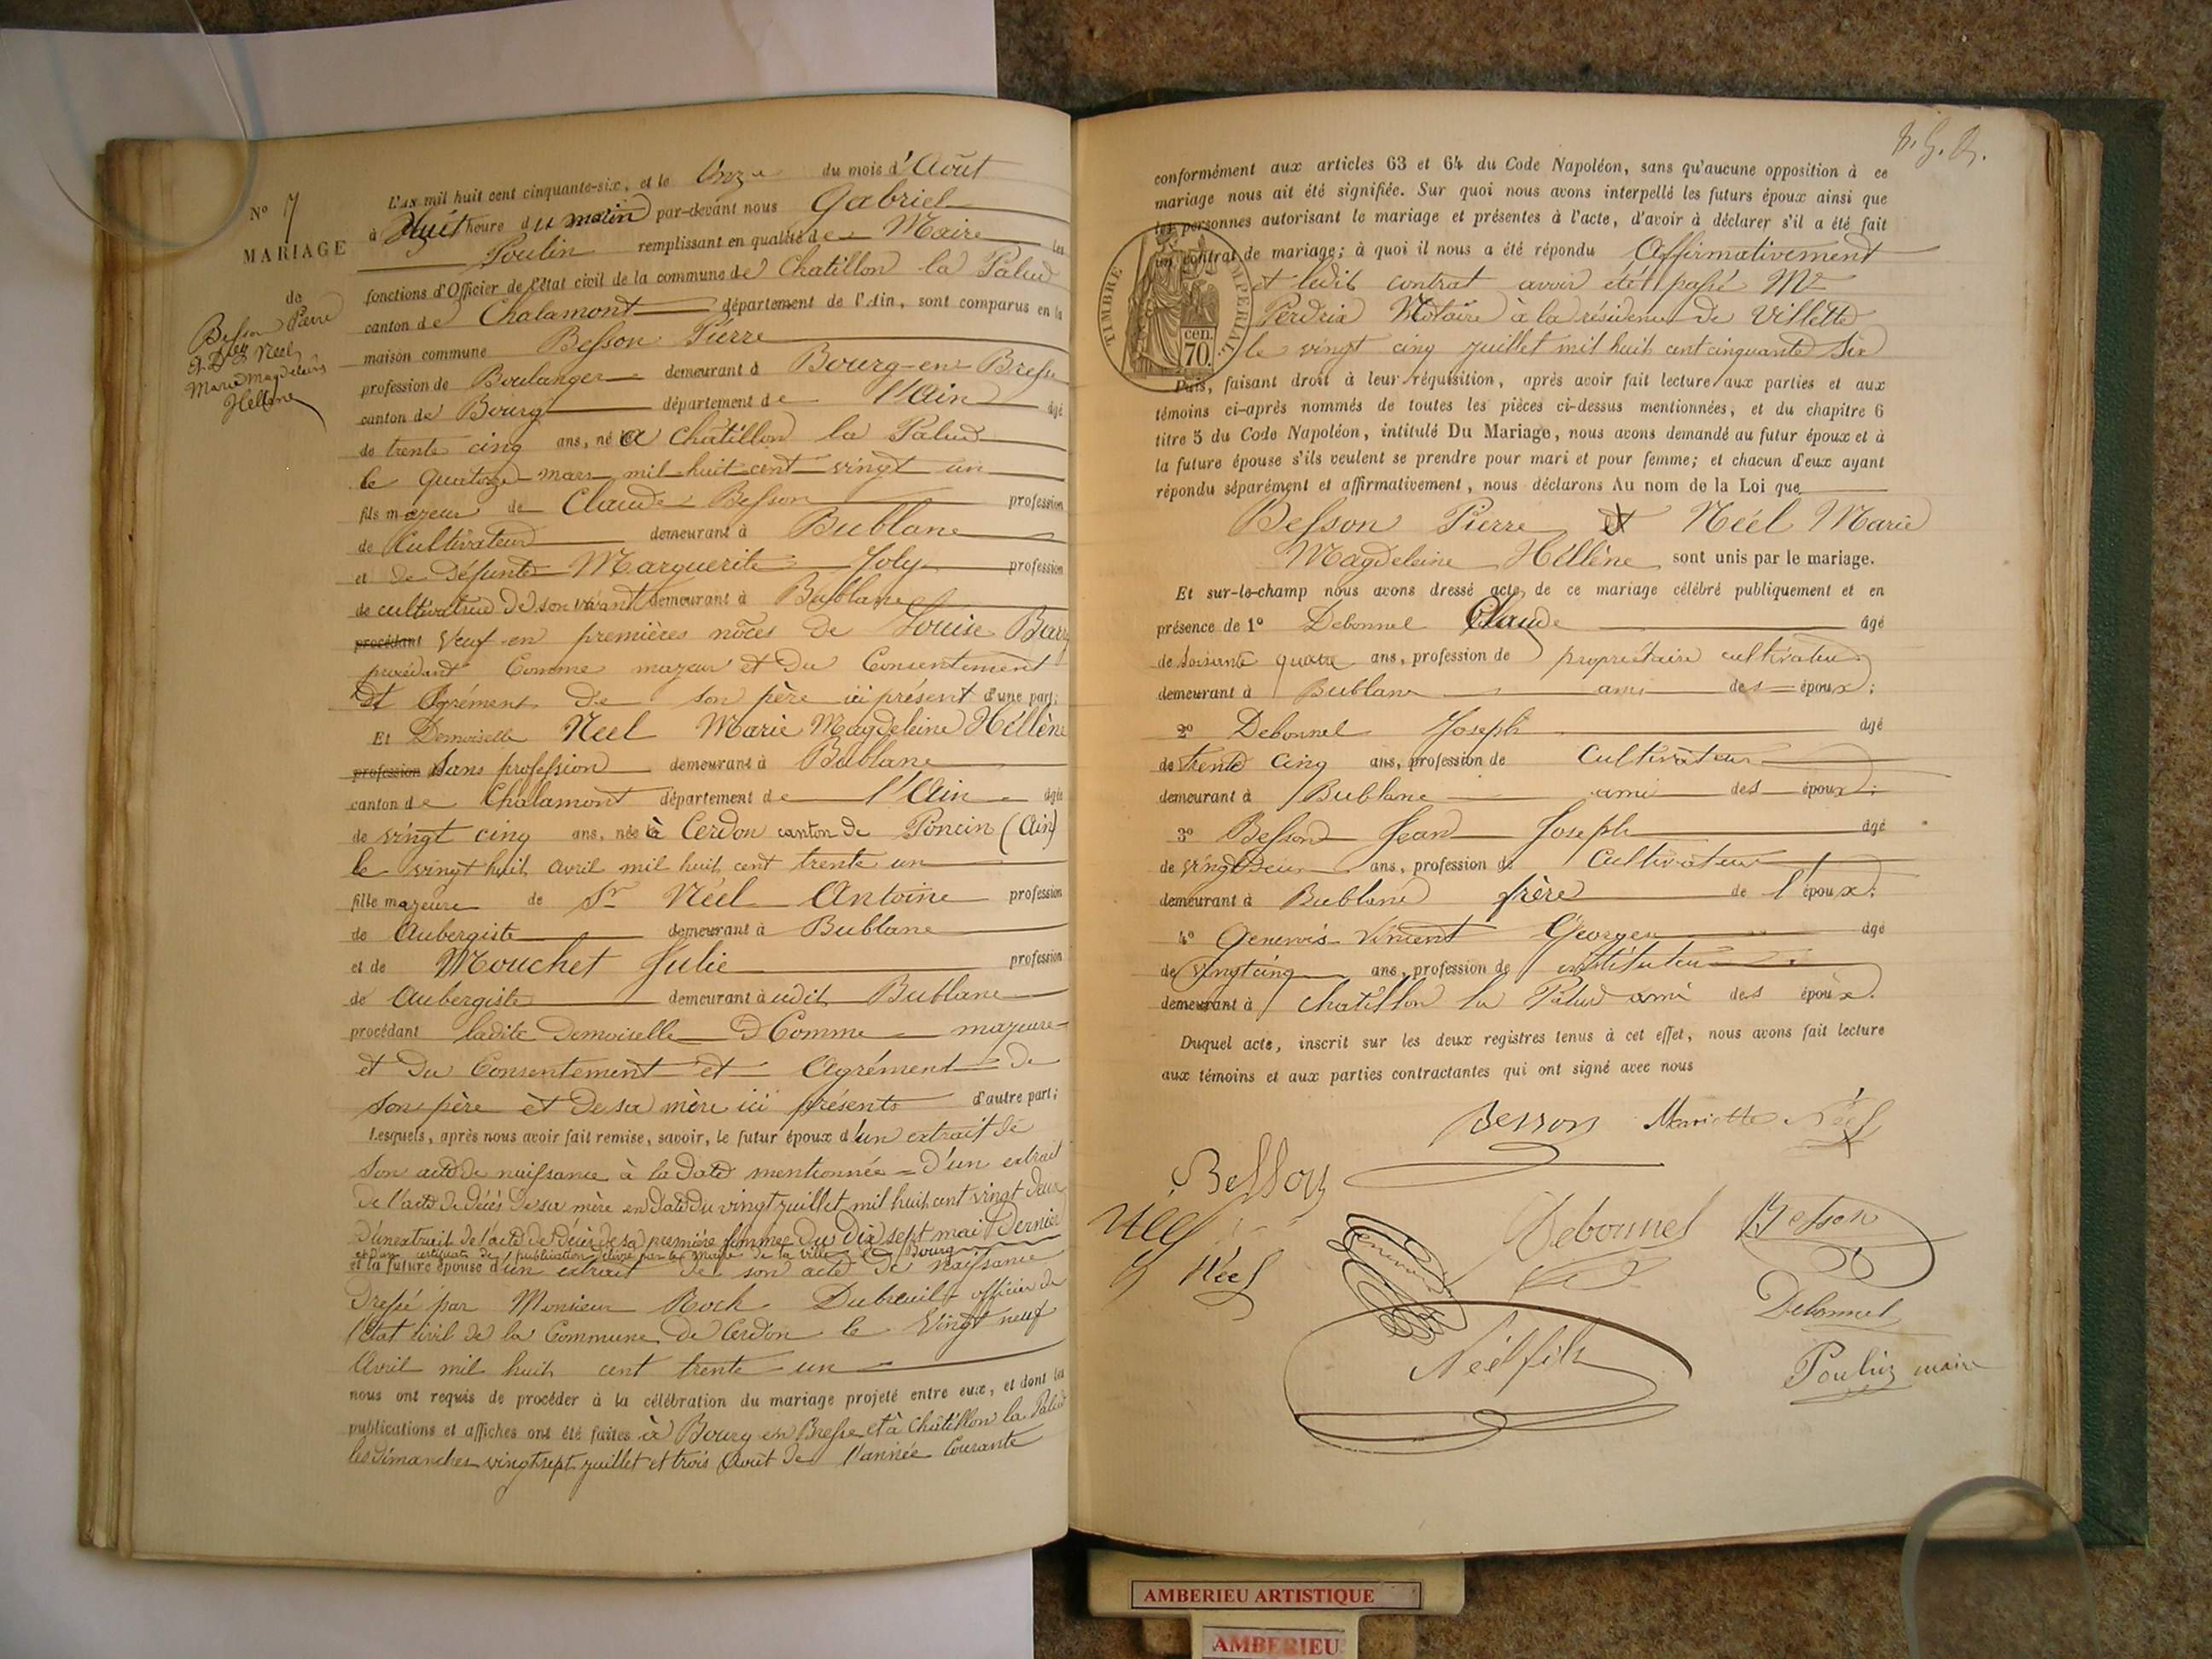 N° 7
MARIAGE
de
Besson Pierre
et Dlle Néel
Marie Magdeleine
Hellène
L'AN mil huit cent cinquante-six, et le Onze du mois d'Août
à Huit heure du matin par-devant nous Gabriel
Poulin remplissant en qualité de Maire les
fonctions d'Officier de l'état civil de la commune de Chatillon la Palud
canton de Chalamont département de l'Ain, sont comparus en la
maison commune Besson Pierre
profession de Boulanger demeurant à Bourg-en Bresse
canton de Bourg département de l'Ain âgé
de trente cinq ans, né à Châtillon la Palud
le quatorze mars mil huit cent vingt un
fils majeur de Claude Besson profession
de Cultivateur demeurant à Bublane
et de défunte Marguerite Joly profession
de cultivatrice de son vivant demeurant à Bublane
procédant Veuf en premières nôces de Louise
procédant Comme majeur et du Consentement
et Agrément de son père ici présent d'une part;
Et Demoiselle Néel Marie Magdeleine Héllène
profession Sans profession demeurant à Bublane
canton de Chalamont département de l'Ain âgée
de vingt cinq ans, née à Cerdon canton de Poncin (Ain)
le vingt huit avril mil huit cent trente un
fille majeure de Sr Néel Antoine profession
de Aubergiste demeurant à Bublane
et de Mouchet Julie profession
de Aubergiste demeurant audit Bublane
procédant ladite Demoiselle Comme majeure
et du Consentement et Agrément de
son père et de sa mère ici présents d'autre part;
Lesquels, après nous avoir fait remise, savoir, le futur époux d'un extrait de
son acte de naissance à la date mentionnée = D'un extrait
de l'acte de décès de sa mère en date du vingt juillet mil huit cent vingt deux
D'un extrait de l'acte de décès de sa première femme du dix sept mai dernier
et d'un certificat de publication délivré par le maire de la ville de Bourg
et la future épouse d'un extrait de son acte de naissance
dressé par Monsieur Roch Dubreuil officier de
l'état civil de la Commune de Cerdon le Vingt neuf
Avril mil huit cent trente un
nous ont requis de procéder à la célébration du mariage projeté entre eux, et dont les
publications et affiches ont été faites à Bourg en Bresse et à Châtillon la Palud
les dimanches vingt sept juillet et trois Août de l'année Courante
conformément aux articles 63 et 64 du Code Napoléon, sans qu'aucune opposition à ce
mariage nous ait été signifiée. Sur quoi nous avons interpellé les futurs époux ainsi que
les personnes autorisant le mariage et présentes à l'acte, d'avoir à déclarer s'il a été fait
un contrat de mariage; à quoi il nous a été répondu Affirmativement
et ledit contrat avoir été passé Me
Perdrix Notaire à la résidence de Villette
le vingt cinq juillet mil huit cent cinquante six
TIMBRE IMPERIAL
cen.
70.
Puis, faisant droit à leur réquisition, après avoir fait lecture aux parties et aux
témoins ci-après nommés de toutes les pièces ci-dessus mentionnées, et du chapitre 6
titre 5 du Code Napoléon, intitulé Du Mariage, nous avons demandé au futur époux et à
la future épouse s'ils veulent se prendre pour mari et pour femme; et chacun d'eux ayant
répondu séparément et affirmativement, nous déclarons Au nom de la Loi que
Besson Pierre et Néel Marie
Magdeleine Héllène sont unis par le mariage.
Et sur-le-champ nous avons dressé acte de ce mariage célébré publiquement et en
présence de 1° Debonnel Claude âgé
de soixante quatre ans, profession de propriétaire cultivateur
demeurant à Bublane ami des époux;
2° Debonnel Joseph âgé
de trente cinq ans, profession de Cultivateur
demeurant à Bublane ami des époux;
3° Besson Jean Joseph âgé
de vingt deux ans, profession de Cultivateur
demeurant à Bublane frère de l'époux;
4° Genevois Vincent Georges âgé
de vingt cinq ans, profession de instituteur
demeurant à Chatillon la Palud ami des époux.
Duquel acte, inscrit sur les deux registres tenus à cet effet, nous avons fait lecture
aux témoins et aux parties contractantes qui ont signé avec nous
Besson Mariette Néel
Besson
Debonnel Besson
Néel
Genevois
Debonnel
Néel fils
Poulin maire
AMBERIEU ARTISTIQUE
AMBERIEU